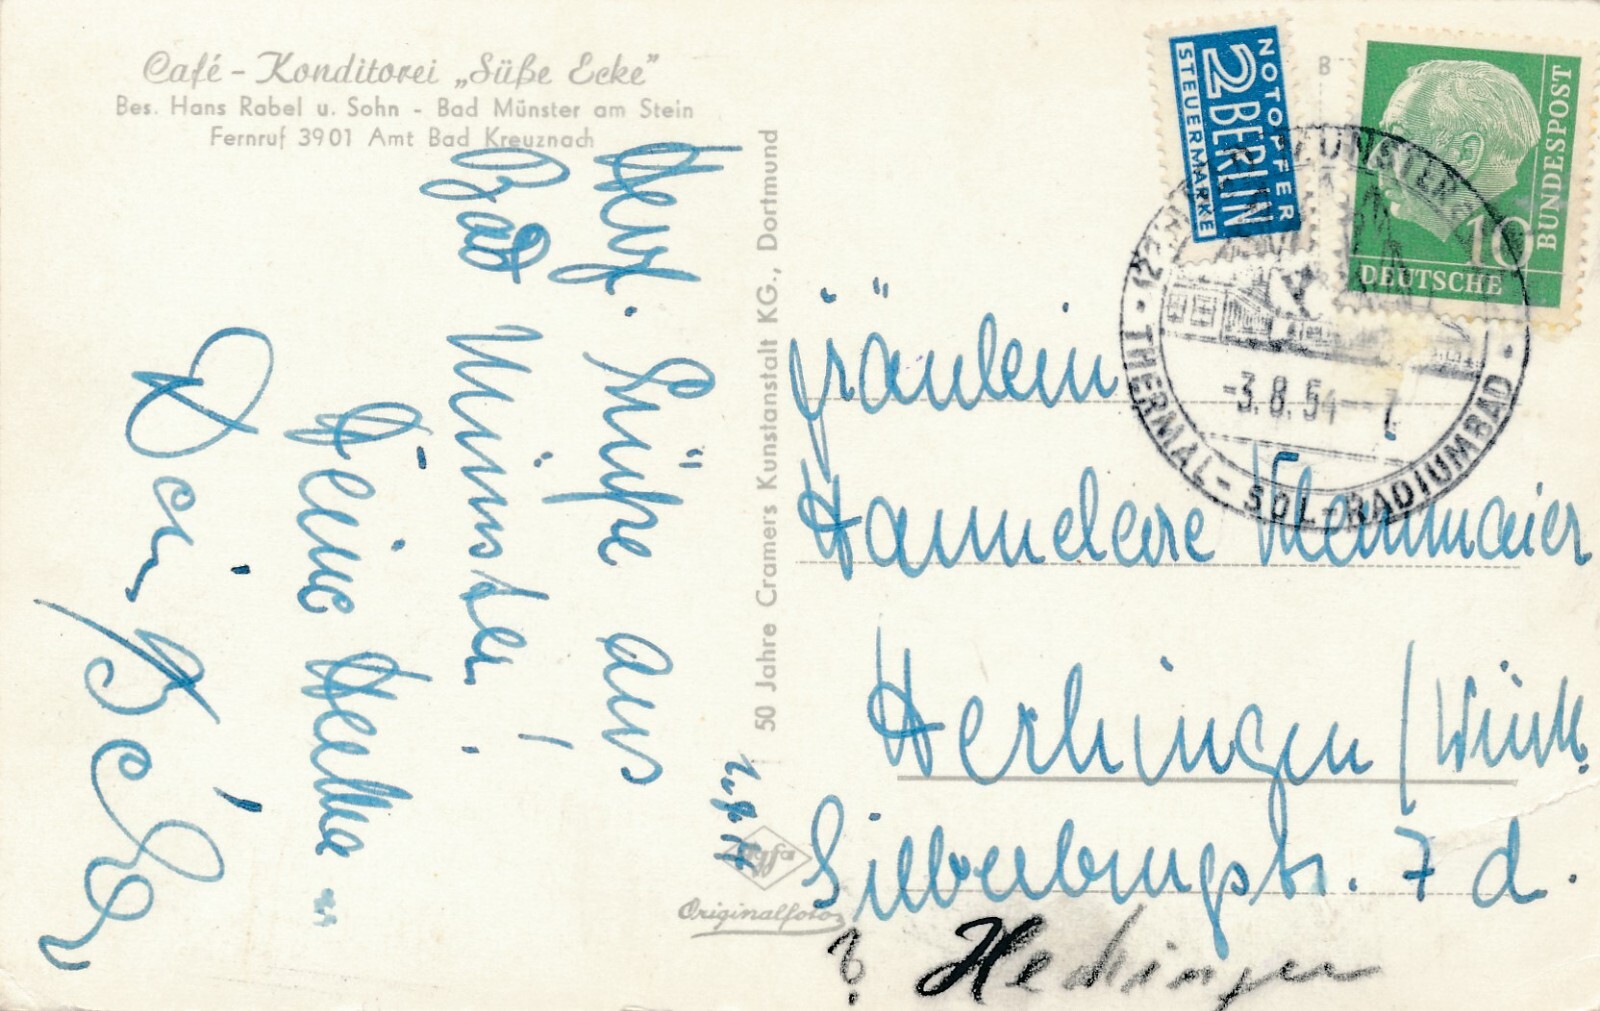 Café - Konditorei „Süße Ecke"
Bes. Hans Rabel u. Sohn - Bad Münster am Stein
Fernruf 3901 Amt Bad Kreuznach
Herzl. Grüße aus
Bad Münster!
Deine
Bad
50 Jahre Cramers Kunstanstalt KG., Dortmund
Agfa
Originalfoto
NOTOPFER
2 BERLIN
STEUERMARKE
DEUTSCHE
BUNDESPOST
10
-3.8.54-7
THERMAL-SOL-RADIUMBAD
Fräulein
Hannelore
Herlingen / Württ.
Silberburgstr. 7 d.
? Hechingen